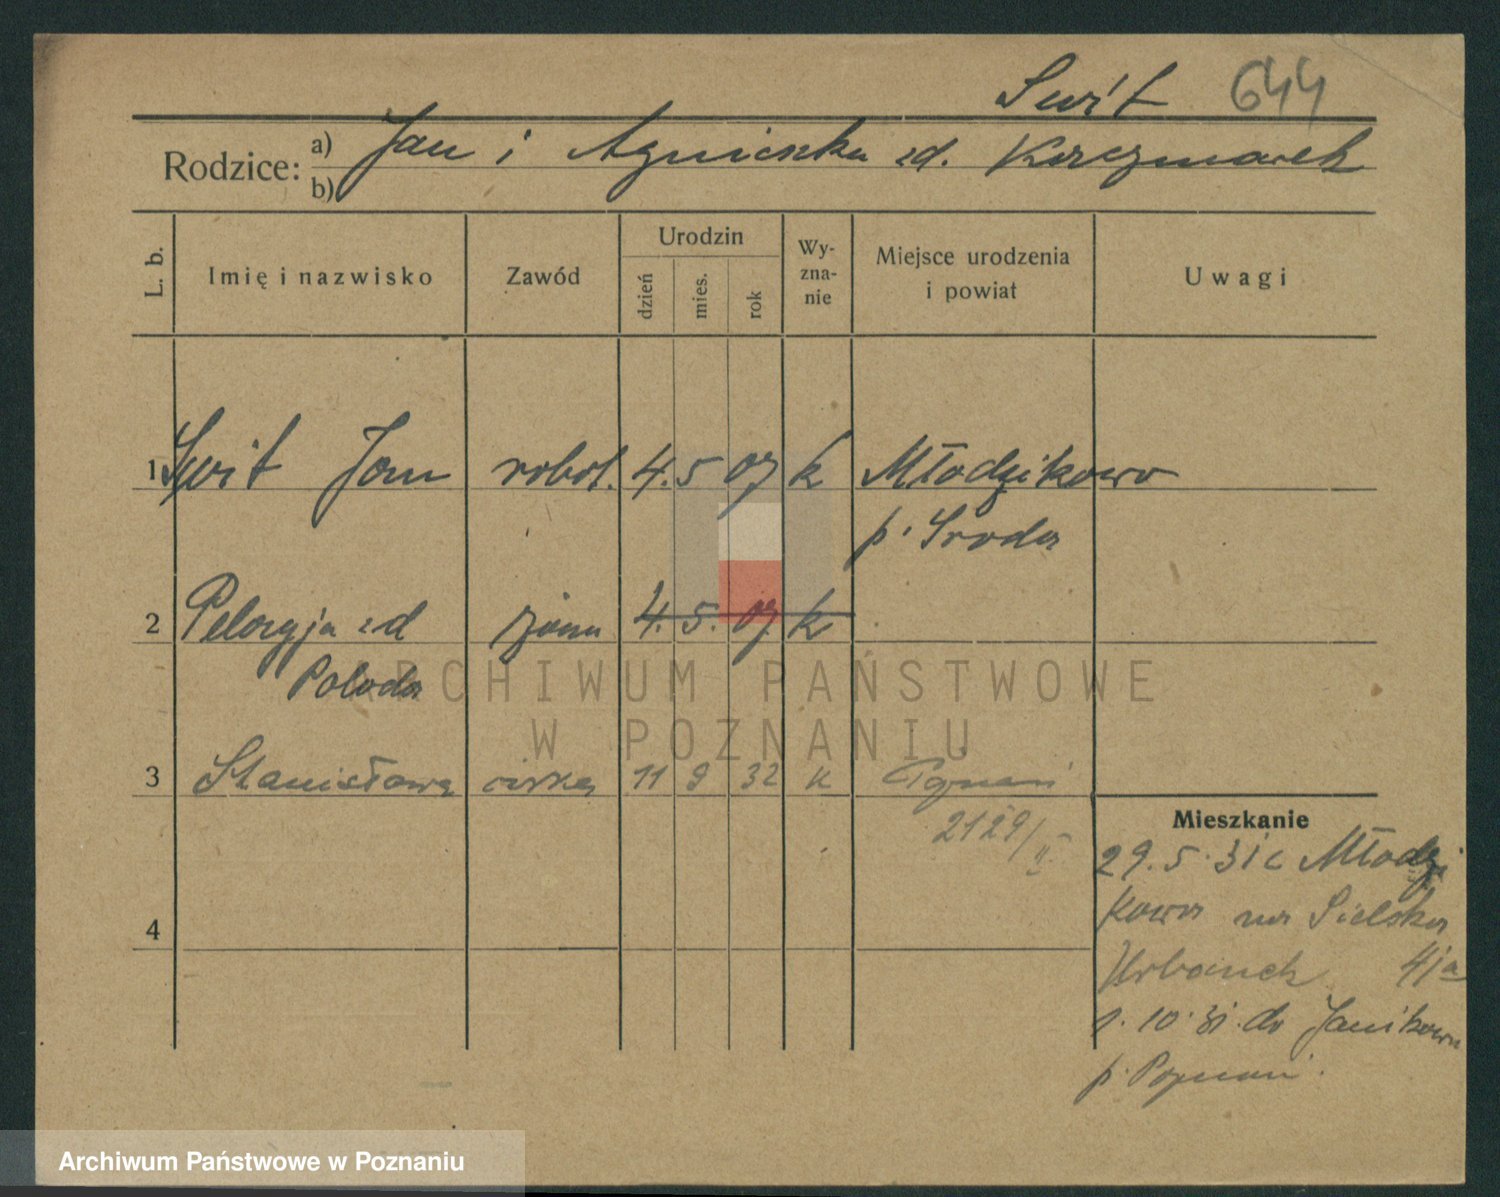 Swit 644
Rodzice: a) Jan i Agnieszka zd. Kaczmarek
b)
L. b. Imię i nazwisko Zawód Urodzin dzień mies. rok Wy-zna-nie Miejsce urodzenia i powiat Uwagi
1 Swit Jan robot. 4. 5 07 k Młodzikowo
p. Sroda
2 Pelagja zd żona 4. 5. 07. k
Poloda
3 Stanisława córka 11 9 32 k Poznań
2129/II
Mieszkanie
29. 5. 31 z Młodzi
kowa na Sielska
Urbanek 41a
1. 10. 31. do Janikowa
p. Poznań.
4
ARCHIWUM PAŃSTWOWE
W POZNANIU
Archiwum Państwowe w Poznaniu